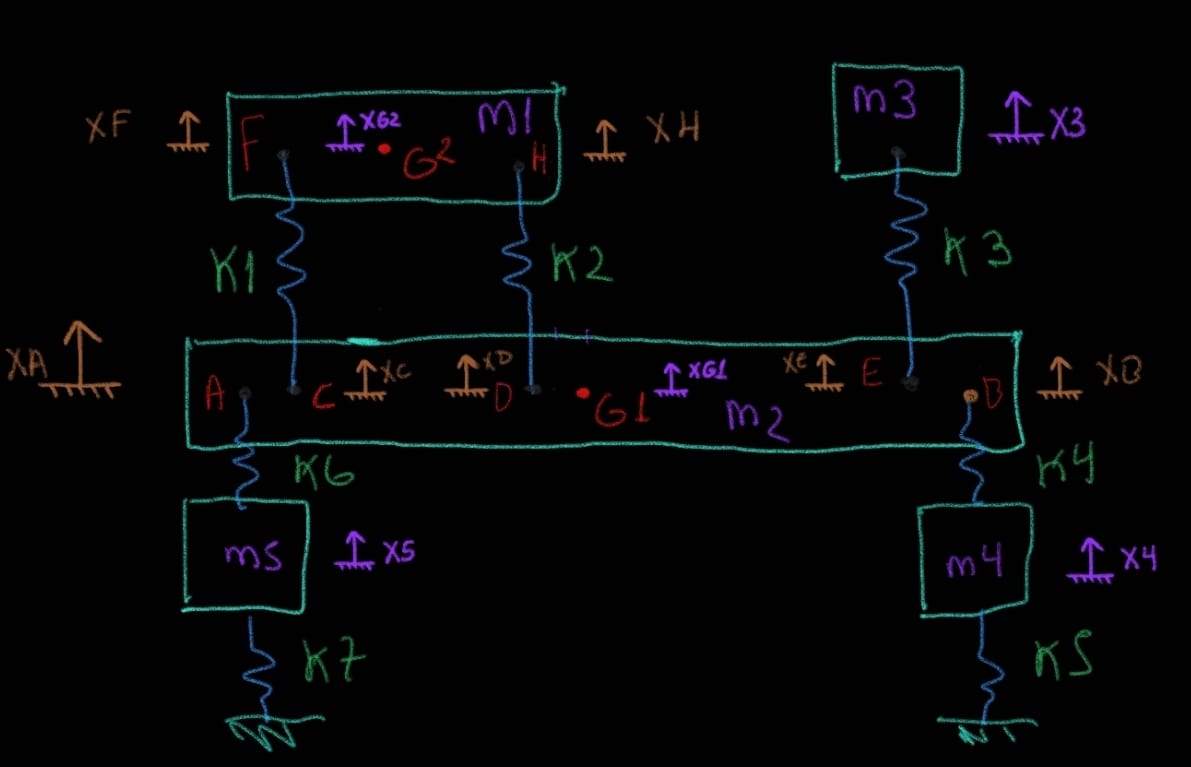 XF
F
XG2
G2
m1
H
XH
m3
X3
K1
K2
K3
XA
A
C
XC
XD
D
G1
XG1
m2
XE
E
B
XB
K6
K4
m5
X5
m4
X4
K7
K5